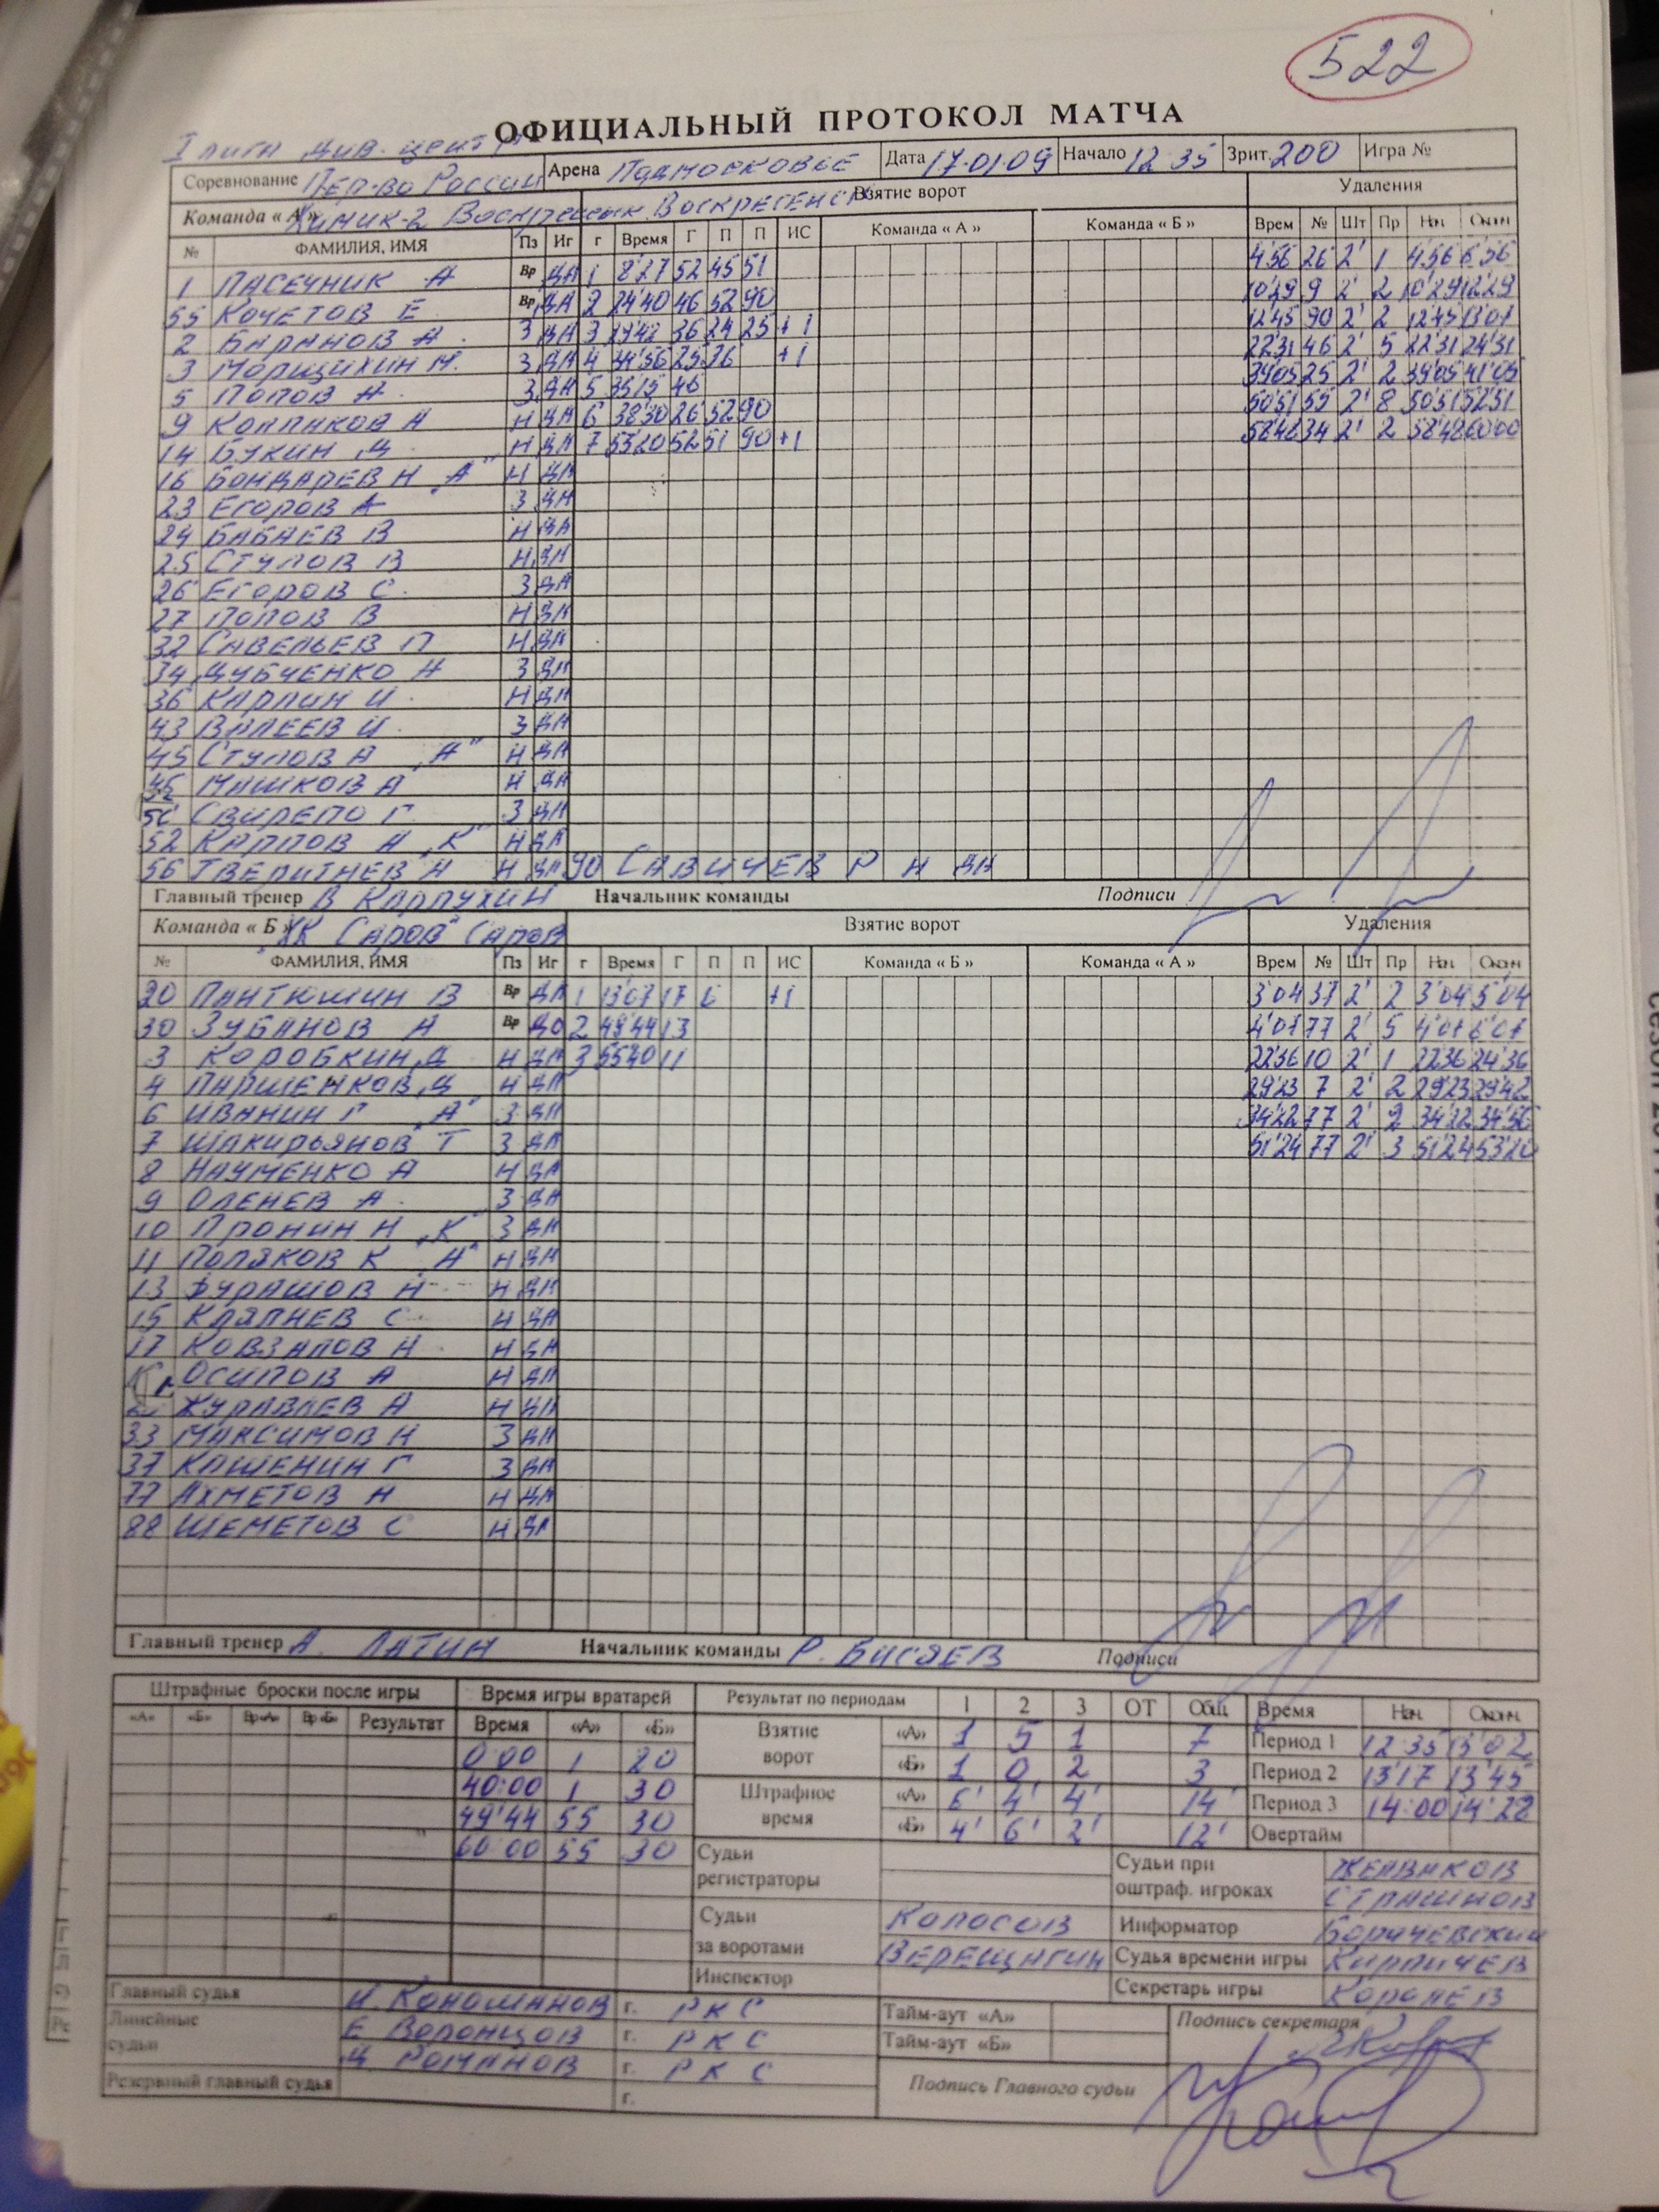 522
ОФИЦИАЛЬНЫЙ ПРОТОКОЛ МАТЧА
I лига див. центр
Соревнование Пер-во России Арена Подмосковье Дата 17.01.09 Начало 12 35 Зрит. 200 Игра №
Команда « А » Химик-2 Воскресенск Воскресенск Взятие ворот Удаления
№ ФАМИЛИЯ, ИМЯ Пз Иг г Время Г П П ИС Команда « А » Команда « Б » Врем № Шт Пр Нач Окон
1 ПАСЕЧНИК А Вр ДА 1 8'27 52 45 51 4'56 26 2' 1 4'56 6'56
55 КОЧЕТОВ Е Вр ДА 2 24'40 46 52 90 10'29 9 2' 2 10'29 12'29
2 БАРАНОВ А З ДА 3 29'42 36 24 25 +1 12'45 90 2' 2 12'45 13'07
3 МОРЩИХИН М. З ДА 4 34'56 25 36 +1 22'31 46 2' 5 22'31 24'31
5 ПОПОВ А З ДА 5 35'15 46 39'05 25 2' 2 39'05 41'05
9 КОЛПАКОВ А Н ДА 6 38'30 26 52 90 50'51 55 2' 8 50'51 52'51
14 БУКИН Д Н ДА 7 53'20 52 51 90 +1 58'48 34 2' 2 58'48 60'00
16 БОНДАРЕВ Н "А" Н ДА
23 ЕГОРОВ А З ДА
24 БАБАЕВ В Н ДА
25 СТУПОВ В Н ДА
26 ЕГОРОВ С. З ДА
27 ПОПОВ В Н ДА
32 САВЕЛЬЕВ П Н ДА
34 ДУБЧЕНКО А З ДА
36 КАРПИН И Н ДА
43 ВАЛЕЕВ И З ДА
45 СТУПОВ А "А" Н ДА
МАШКОВ А Н ДА
СВИРЕПО Г З ДА
52 КАРПОВ А "К" Н ДА
56 ТВЕРИТНЕВ А Н ДА 90 САВИЧЕВ Р Н ДА
Главный тренер В КАРПУХИН Начальник команды Подписи
Команда « Б » ХК "Саров" Саров Взятие ворот Удаления
№ ФАМИЛИЯ, ИМЯ Пз Иг г Время Г П П ИС Команда « Б » Команда « А » Врем № Шт Пр Нач Оконч
20 ПАНТЮШИН В Вр ДА 1 13'07 17 6 +1 3'04 37 2' 2 3'04 5'04
30 ЗУБАНОВ А Вр ДА 2 49'44 13 4'07 77 2' 5 4'07 6'07
3 КОРОБКИН Д Н ДА 3 55'40 11 22'36 10 2' 1 22'36 24'36
4 ПАРШЕНКОВ Д Н ДА 29'23 7 2' 2 29'23 29'42
6 ИВАНИН Г "А" З ДА 34'22 77 2' 2 34'22 34'56
7 ШАКИРЬЯНОВ Т З ДА 51'24 77 2' 3 51'24 53'20
8 НАУМЕНКО А Н ДА
9 ОЛЕНЕВ А. З ДА
10 ПРОНИН Н "К" З ДА
11 ПОЛЯКОВ К "А" Н ДА
13 ФУРАШОВ Н Н ДА
15 КЛЯПНЕВ С Н ДА
17 КОВЗАЛОВ Н Н ДА
ОСИПОВ А Н ДА
ЖУРАВЛЕВ А Н ДА
33 МАКСИМОВ Н З ДА
37 КАШЕНИН Г З ДА
77 АХМЕТОВ Н Н ДА
88 ШЕМЕТОВ С Н ДА
Главный тренер А. ЛАТИН Начальник команды Р. БИСЯЕВ Подписи
Штрафные броски после игры Время игры вратарей Результат по периодам 1 2 3 ОТ Общ. Время Нач. Оконч.
«А» «Б» Вр«А» Вр«Б» Результат Время «А» «Б» Взятие ворот «А» 1 5 1 7 Период 1 12 35 13'02
0'00 1 20 «Б» 1 0 2 3 Период 2 13'17 13'45
40:00 1 30 Штрафное время «А» 6' 4' 4' 14' Период 3 14:00 14'28
49'44 55 30 «Б» 4' 6' 2' 12' Овертайм
60 00 55 30 Судьи регистраторы Судьи при оштраф. игроках ЖЕЛВАКОВ
СТРАШНОВ
Судьи за воротами КОЛОСОВ Информатор БОРАЧЕВСКИЙ
ВЕРЕЩАГИН Судья времени игры КИРПИЧЕВ
Инспектор Секретарь игры КОРОЛЕВ
Главный судья И. КОНОМАНОВ г. РКС Тайм-аут «А» Подпись секретаря
Линейные судьи Е ВОРОНЦОВ г. РКС Тайм-аут «Б»
Д РОМАНОВ г. РКС Подпись Главного судьи
Резервный главный судья г.